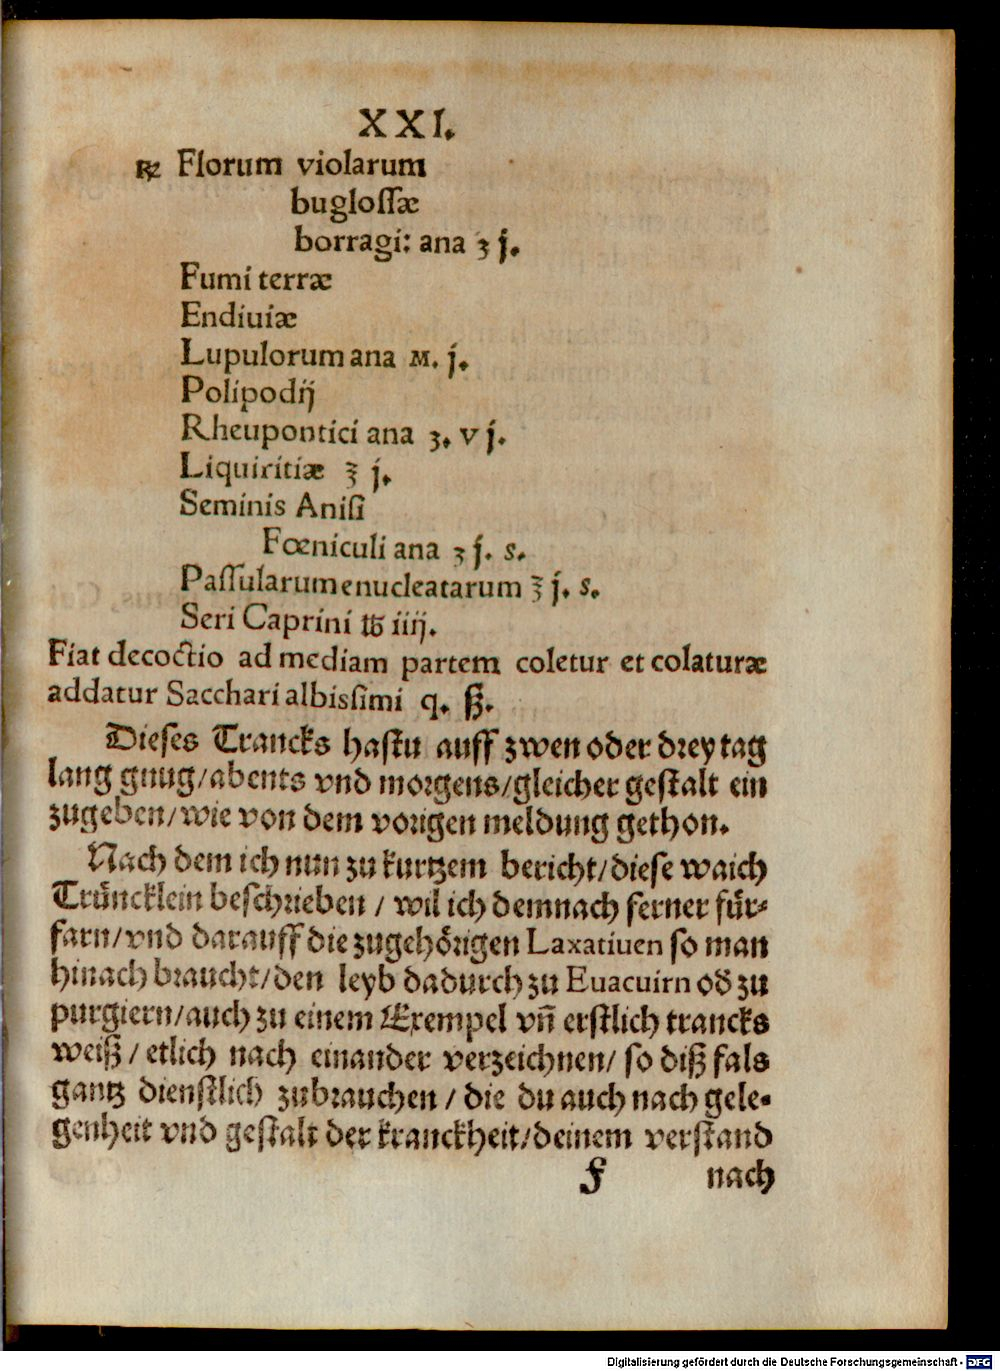 XXI.
℞ Florum violarum
bugloſſæ
borragi: ana ʒ j.
Fumi terræ
Endiuiæ
Lupulorum ana M. j.
Polipodij
Rheupontici ana ʒ. v j.
Liquiritiæ ℥ j.
Seminis Aniſi
Fœniculi ana ʒ j. s.
Paſſularum enucleatarum ℥ j. s.
Seri Caprini ℔ iiij.
Fiat decoctio ad mediam partem coletur et colaturæ
addatur Sacchari albiſſimi q. ß.
Dieſes Trancks haſtu auff zwen oder drey tag
lang gnug/abents vnd morgens/gleicher geſtalt ein
zugeben/wie von dem vorigen meldung gethon.
Nach dem ich nun zu kurtzem bericht/dieſe waich
Trüncklein beſchrieben / wil ich demnach ferner für⸗
farn/vnd darauff die zugehörigen Laxatiuen ſo man
hinach braucht/den leyb dadurch zu Euacuirn od zu
purgiern/auch zu einem Exempel vñ erſtlich trancks
weiß / etlich nach einander verzeichnen/ ſo diß fals
gantz dienſtlich zubrauchen / die du auch nach gele⸗
genheit vnd geſtalt der kranckheit/deinem verſtand
F nach
Digitalisierung gefördert durch die Deutsche Forschungsgemeinschaft - DFG